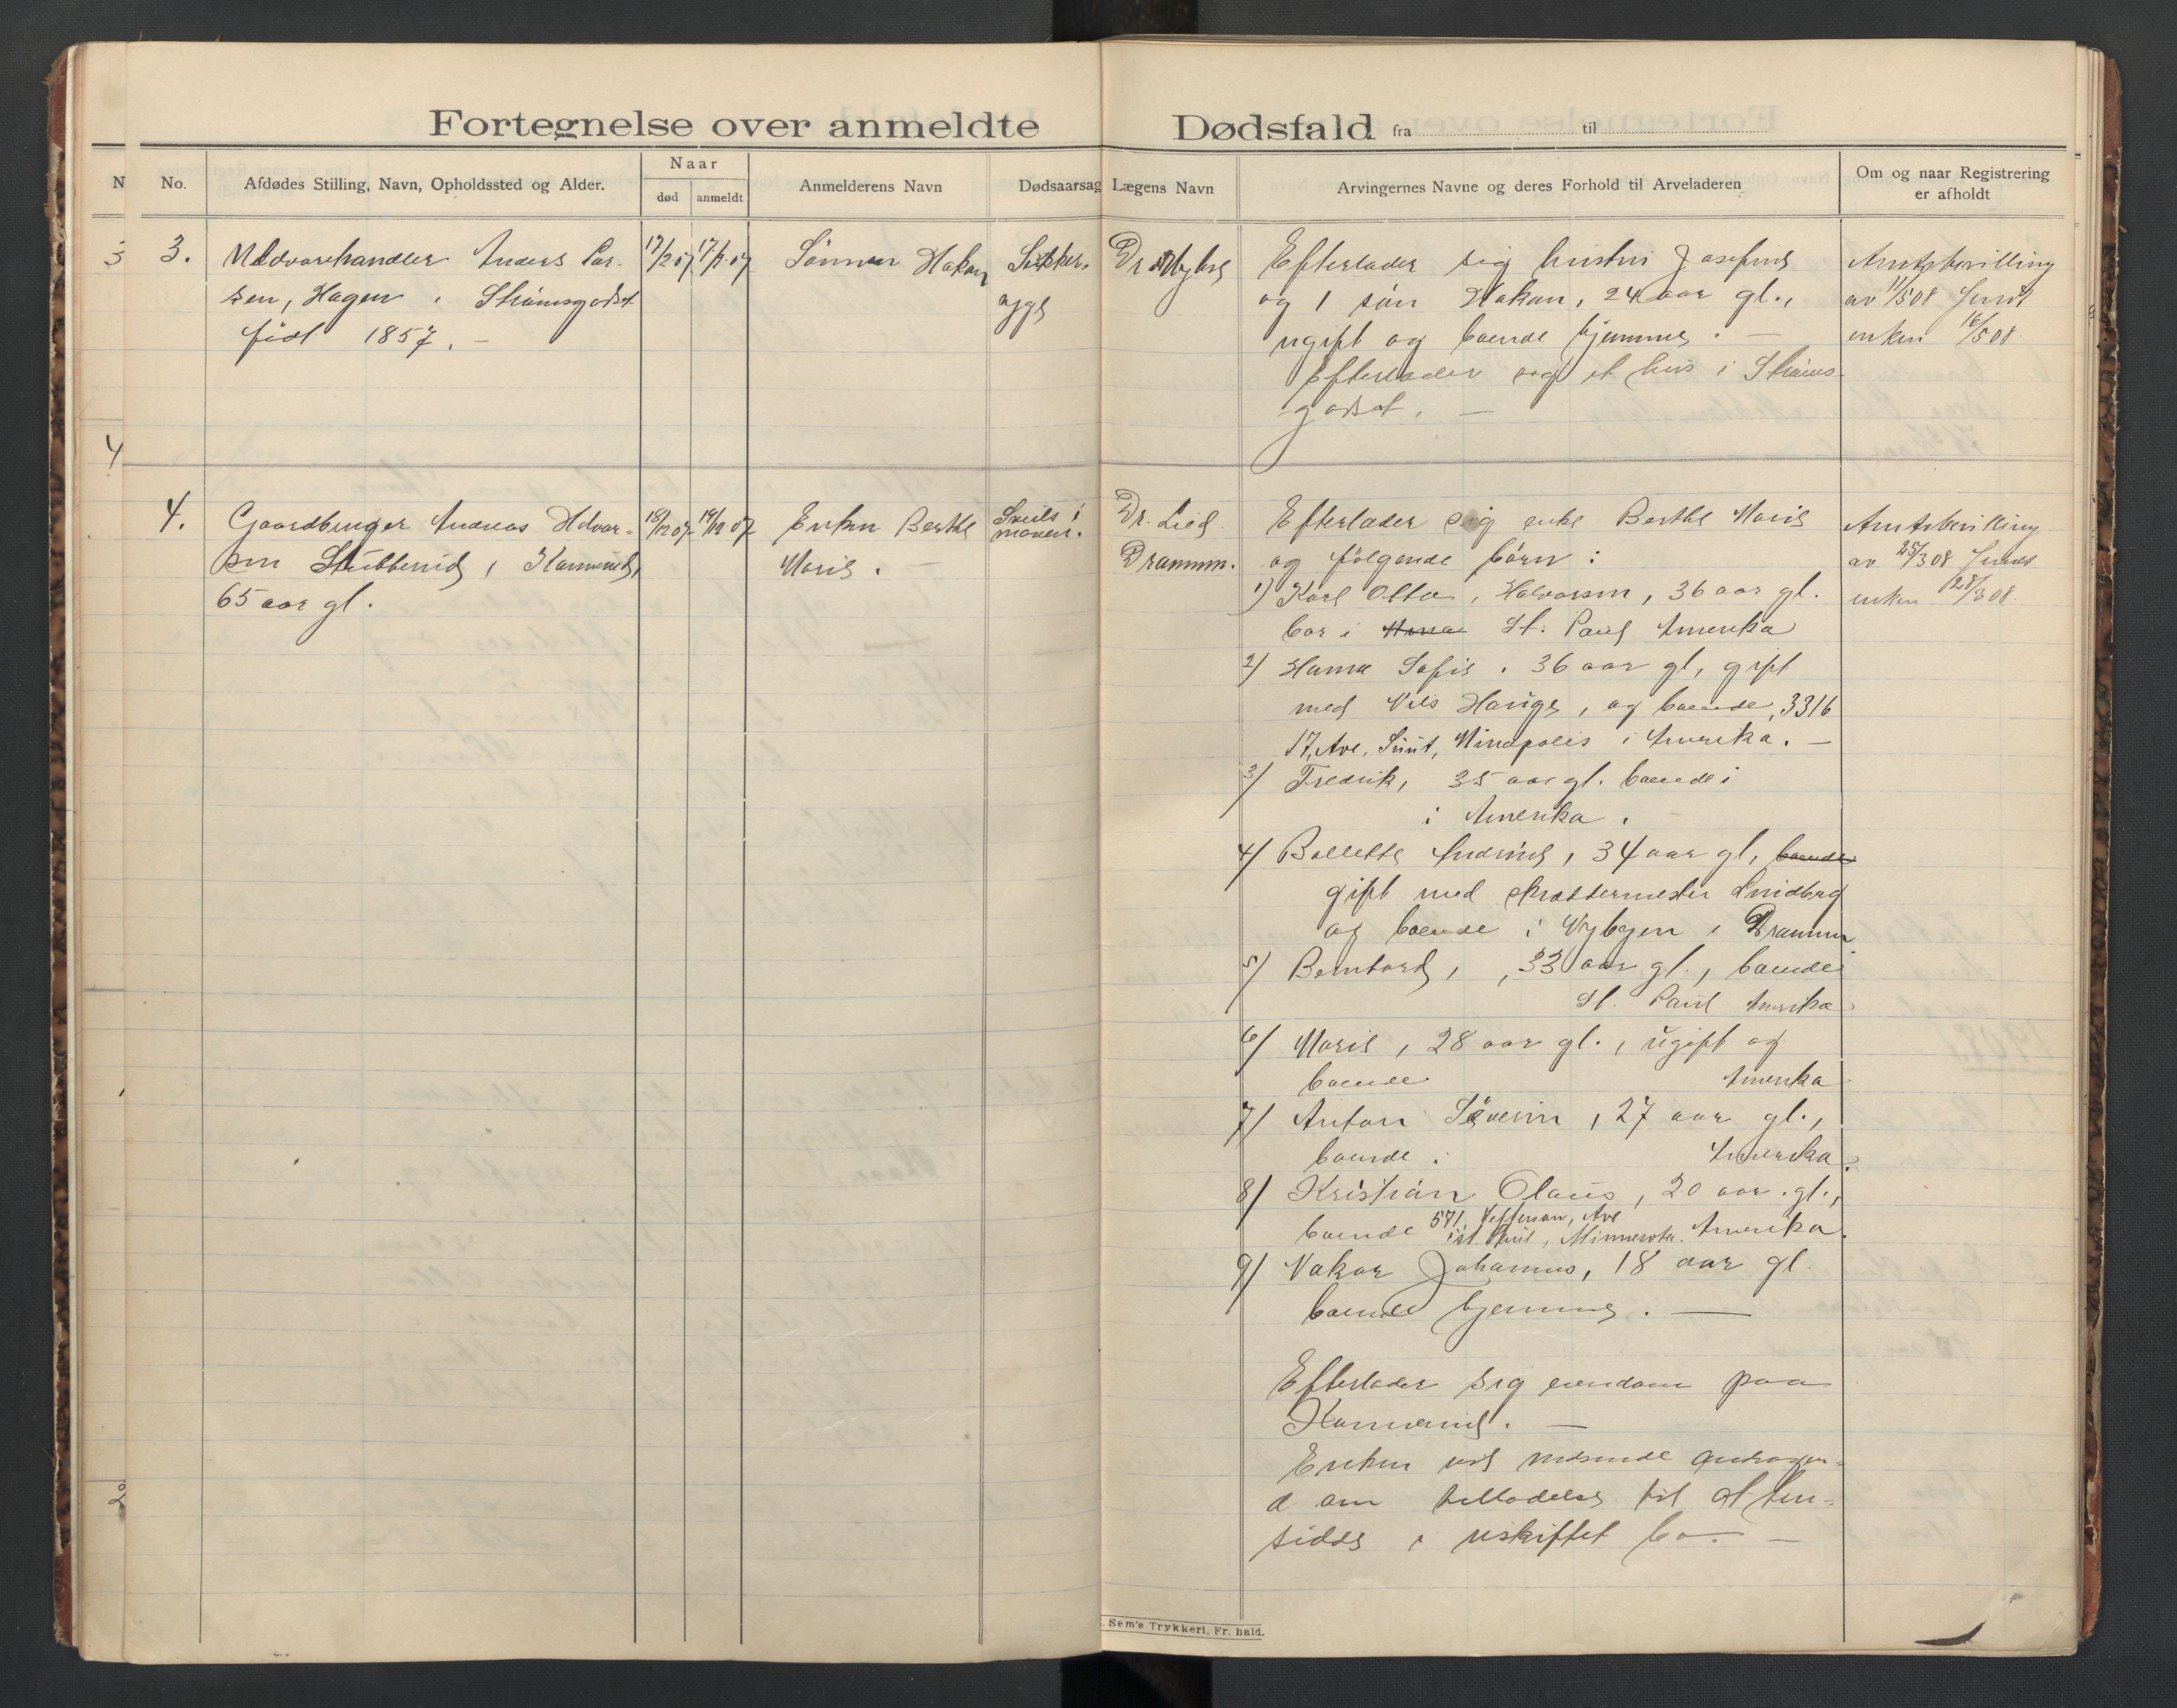 Fortegnelse over anmeldte Dødsfald fra til
No. Afdødes Stilling, Navn, Opholdssted og Alder. Naar død anmeldt Anmelderens Navn Dødsaarsag Lægens Navn Arvingernes Navne og deres Forhold til Arveladeren Om og naar Registrering er afholdt
N
3
4
3.
Uldvarehandler Anders Lar-
sen, Hagen, Strømsgodset
født 1857. –
17/12 07
17/12 07
Sønnen Hakon
Sukker-
syge
Dr. Nyhus
Efterlader sig hustru Josefine
og 1 søn Hakon, 24 aar gl.,
ugift og boende hjemme. –
Efterlader sig et hus i Strøms-
godset. –
Amtsbevilling
av 11/5 08 sendt
enken 16/5 08.
4.
Gaardbruger Andreas Halvor-
sen Stubberud, Konnerud,
65 aar gl.
18/12 07
19/12 07
Enken Berthe
Marie. –
Svuls i
maven.
Dr. Lied
Drammen.
Efterlader sig enke Berthe Marie
og følgende børn:
1) Karl Otto, Halvorsen, 36 aar gl.
bor i St. Paul Amerika
2) Hanna Sofie, 36 aar gl, gift
med Nils Hauge, og boende, 3316
17, Ave, Suut, Minapolis i Amerika. –
3) Fredrik, 35 aar gl. boende i
i Amerika.
4) Bollette Andrine, 34 aar gl, boende
gift med skræddermester Lindberg
og boende i Nybyen i Drammen
5) Bernhard, 33 aar gl., boende
St. Paul Amerika
6) Marie, 28 aar gl., ugift og
boende Amerika
7) Anton Severin, 27 aar gl.,
boende i Amerika.
8) Kristian Olaus, 20 aar gl.,
571, Jefferson, Ave
boende i St. Paul, Minnesota. Amerika.
9) Johannes, 18 aar gl.
boende hjemme. –
Efterlader sig eiendom paa
Konnerud. –
Enken vil indsende andragen-
d om tilladelse til at hen-
sidde i uskiftet bo. –
Amtsbevilling
av 25/3 08 sendt
enken 28/3 08.
Sem's Trykkeri, Fr. hald.